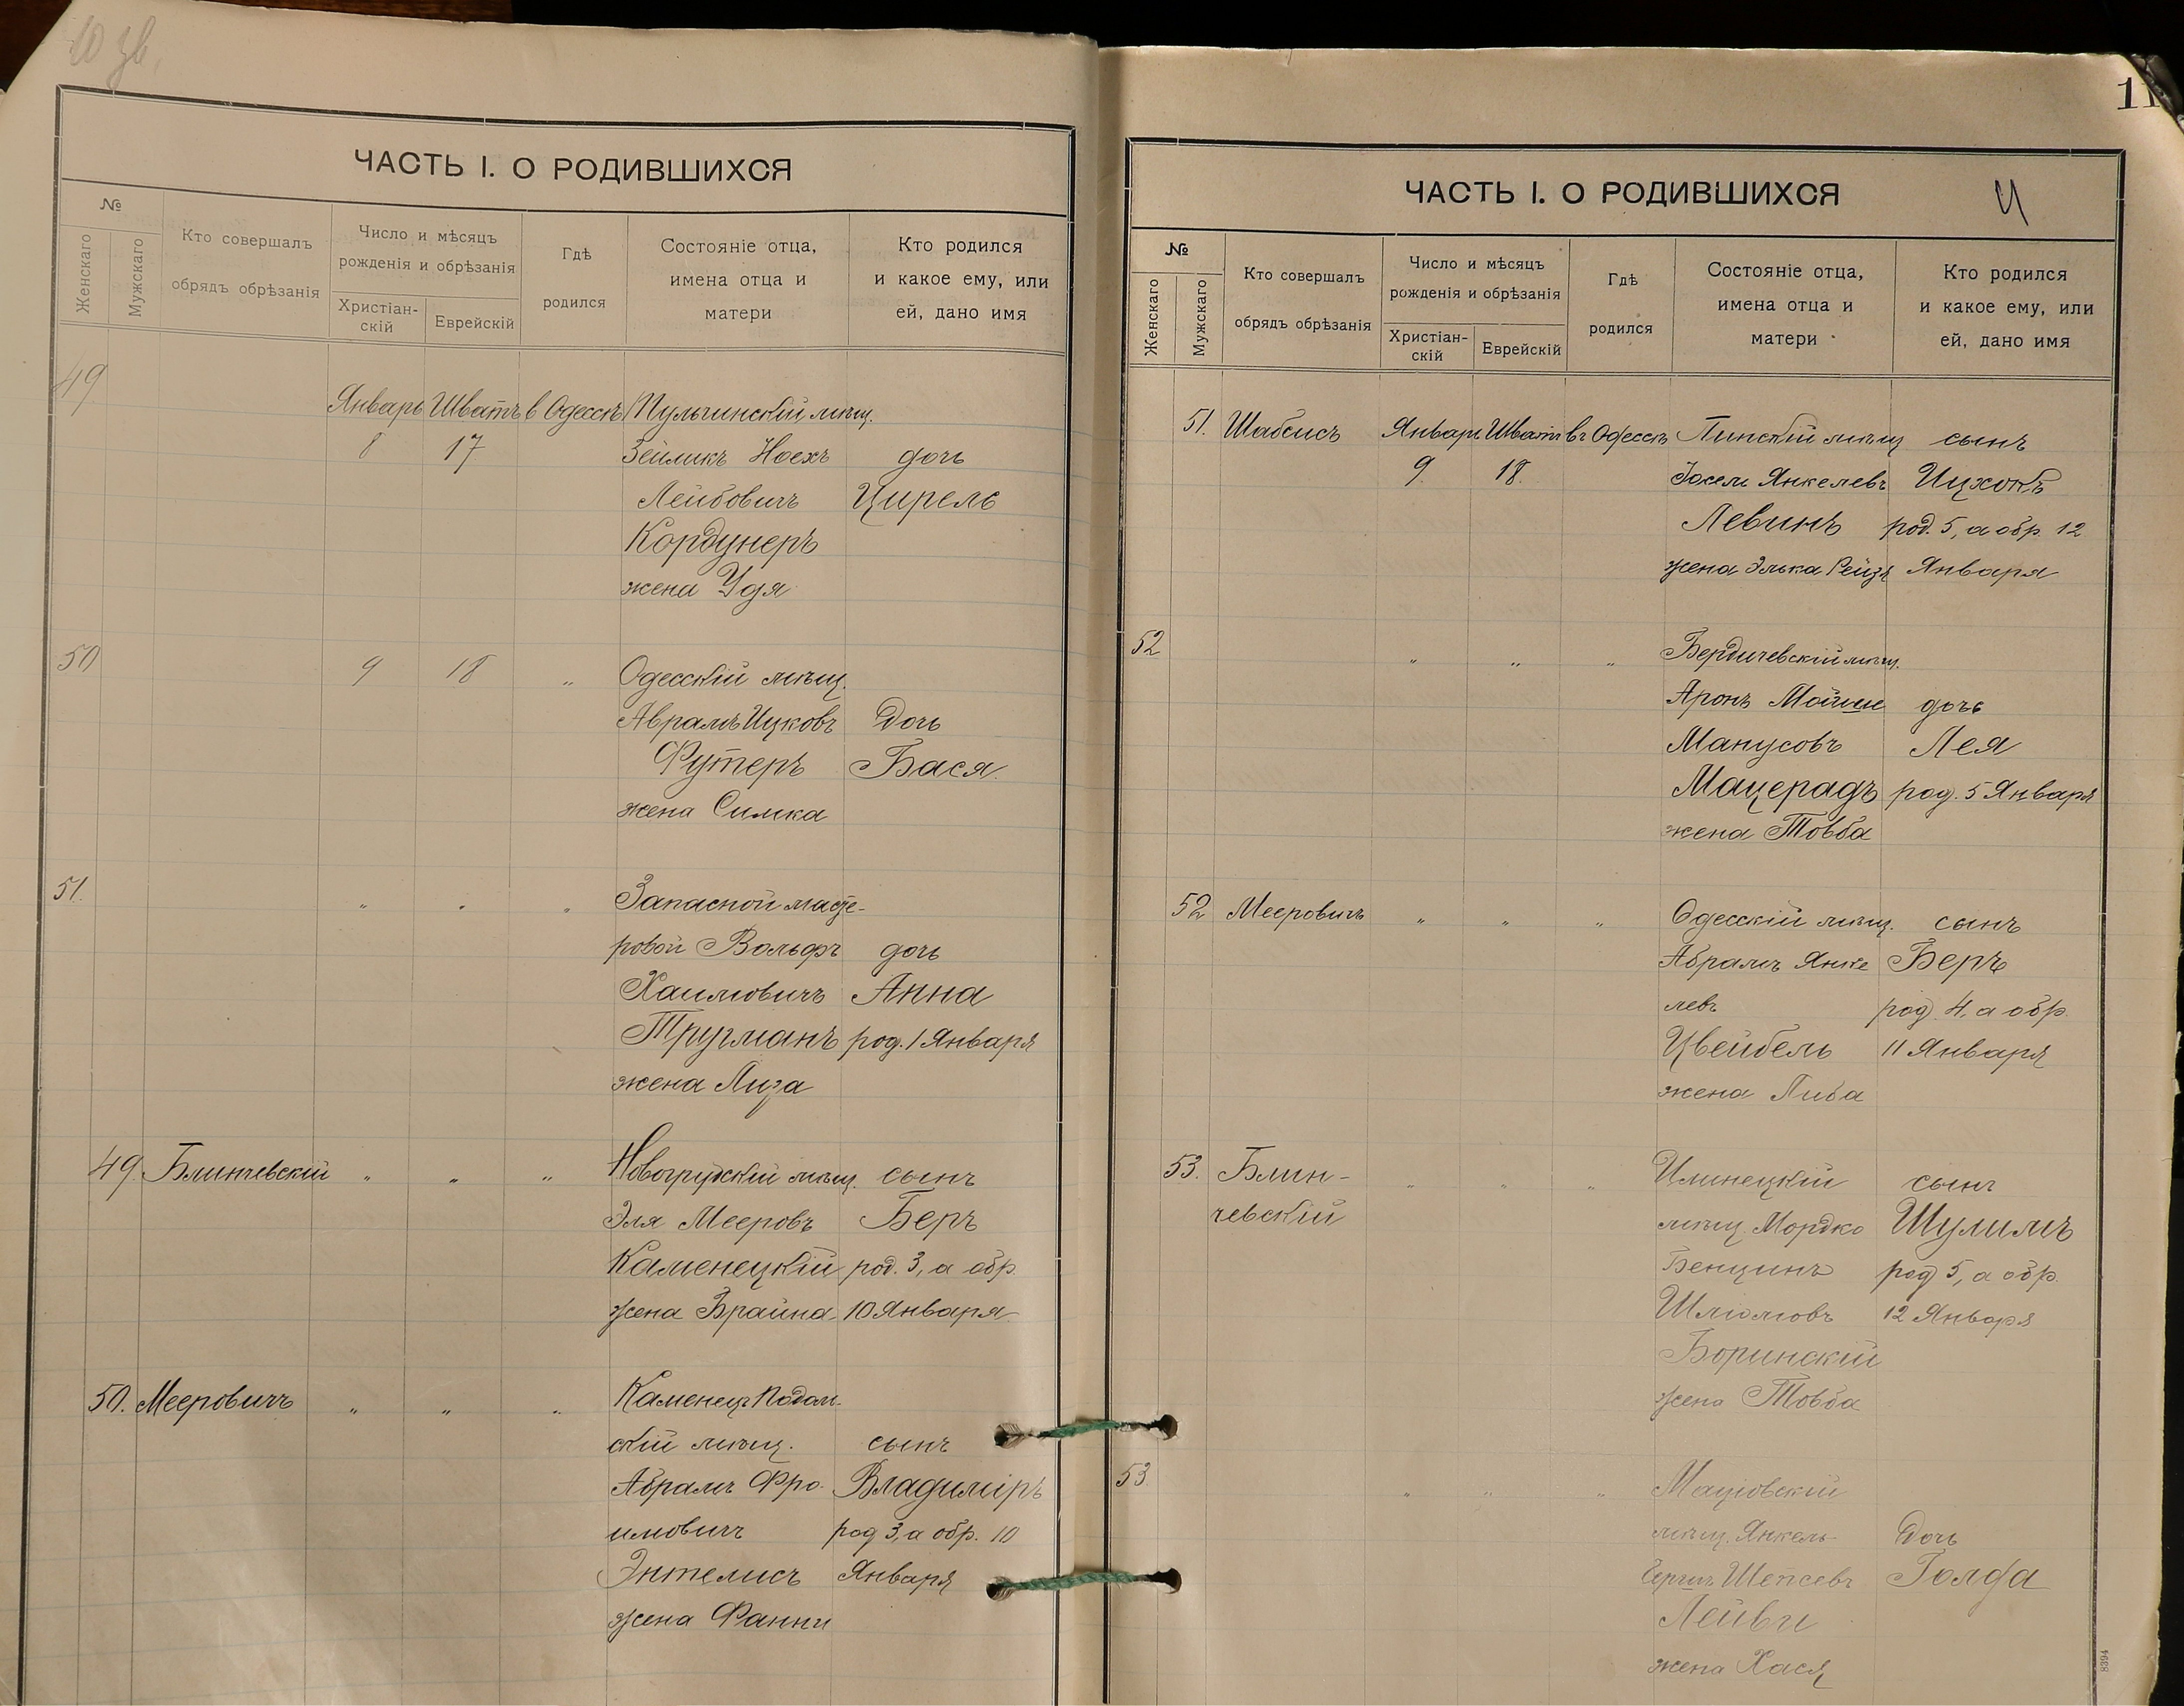 10 зв.
ЧАСТЬ I. О РОДИВШИХСЯ
№
Женскаго
Мужскаго
Кто совершалъ
обрядъ обрѣзанія
Число и мѣсяцъ
рожденія и обрѣзанія
Христіан-
скій
Еврейскій
Гдѣ
родился
Состояніе отца,
имена отца и
матери
Кто родился
и какое ему, или
ей, дано имя
49
Январь Шватъ в Одессѣ Пульчинскій мѣщ.
8 17 Зейликъ Ноехъ дочь
Лейбовичъ Цирель
Кордунеръ
жена Удя
50 9 18 " Одесскій мѣщ.
Аврамъ Ицковъ Дочь
Футеръ Бася
жена Симка
51. " " " Запасной масте-
ровой Вольфъ дочь
Хаимовичъ Анна
Тругманъ род. 1 Января
жена Лиза
49. Блинчевскій " " " Новогрудскій мѣщ. сынъ
Эля Мееровъ Беръ
Каменецкій род. 3, а обр.
жена Брайна 10 Января
50. Мееровичъ " " " Каменецъ Подол-
скій мѣщ. сынъ
Абрамъ Фро- Владиміръ
имовичъ род 3, а обр. 10
Энтелисъ Января
жена Фанни
11
ЧАСТЬ I. О РОДИВШИХСЯ
№
Женскаго
Мужскаго
Кто совершалъ
обрядъ обрѣзанія
Число и мѣсяцъ
рожденія и обрѣзанія
Христіан-
скій
Еврейскій
Гдѣ
родился
Состояніе отца,
имена отца и
матери
Кто родился
и какое ему, или
ей, дано имя
51. Шабсисъ Январь Шватъ въ Одессѣ Пинскій мѣщ сынъ
9. 18. Іосель Янкелевъ Ицхокъ
Левинъ род. 5, а обр. 12
жена Элька Рейзя Января
52 " " " Бердичевскій мѣщ.
Аронъ Мойше дочь
Манусовъ Лея
Мацерадъ род. 5 Января
жена Товба
52 Мееровичъ " " " Одесскій мѣщ. сынъ
Абрамъ Янке Беръ
левъ род. 4, а обр.
Цвейбель 11 Января
жена Либа
53. Блин- " " " Илинецкій сынъ
чевскій мѣщ. Мордко Шулимъ
Бенцинъ род 5, а обр.
Шліомовъ 12 Января
Боринскій
жена Товба
53 " " " Маціовскій
мѣщ. Янкель- Дочь
Шепсевъ Голда
Лейви
жена Хася
8394